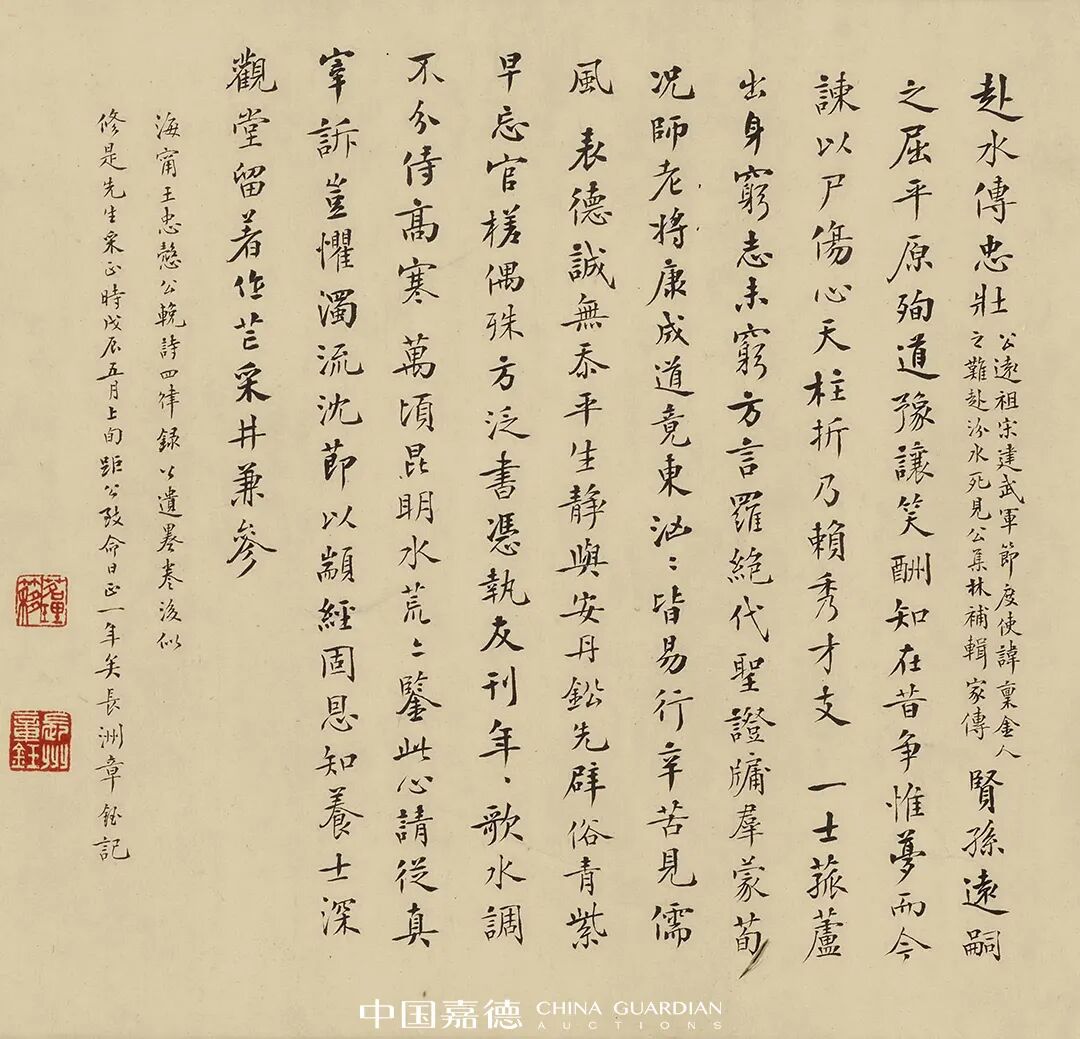 赴水傳忠壯公遠祖宋建武軍節度使諱稟金人
之難赴汾水死見公集林補輯家傳賢孫遠嗣
之屈平原殉道豫讓笑酬知在昔爭惟夢而今
諫以尸傷心天柱折乃賴秀才支 一士菰蘆
出身窮志未窮方言羅絕代聖證牖羣蒙荀
況師老將康成道竟東汹〻皆易行辛苦見儒
風 表德誠無忝平生靜與安丹鉛先辟俗青紫
早忘官槎偶殊方泛書憑執友刊年〻歌水調
不分侍高寒 萬頃昆明水荒〻鑒此心請從真
宰訴豈懼濁流沈節以顓經固恩知養士深
觀堂留著作芒采井兼參
海甯王忠慤公輓詩四律錄公遺墨卷後似
修是先生采正時戊辰五月上旬距公致命日正一年矣長洲章鈺記
茗理
簃
長州
章鈺
中国嘉德 CHINA GUARDIAN
AUCTIONS